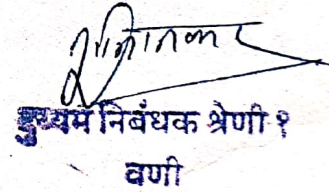 दुय्यम निबंधक श्रेणी १
वणी